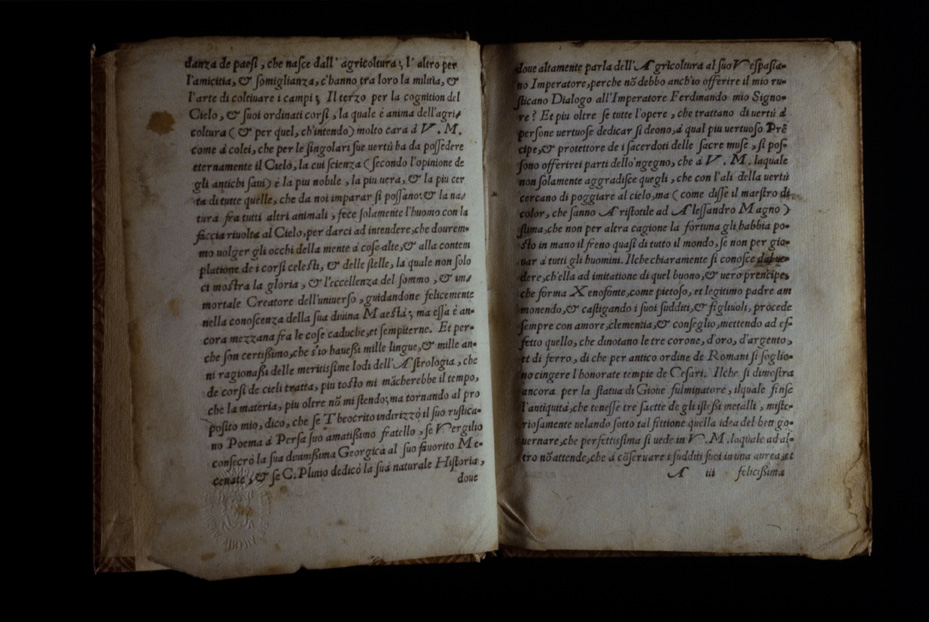 danza de paesi, che nasce dall' agricoltura; l' altro per
l'amicitia, & somiglianza, c'hanno tra loro la militia, &
l'arte di coltiuare i campi; Il terzo per la cognition del
Cielo, & suoi ordinati corsi, la quale è anima dell'agri-
coltura (& per quel, ch'intendo) molto cara à V. M.
come à colei, che per le singolari sue uertù ha da possedere
eternamente il Cielo, la cui scienza (secondo l'opinione de
gli antichi saui) è la piu nobile, la piu uera, & la piu cer
ta di tutte quelle, che da noi imparar si possano: & la na-
tura fra tutti altri animali, fece solamente l'huomo con la
faccia riuolta al Cielo, per darci ad intendere, che dourem-
mo uolger gli occhi della mente à cose alte, & alla contem
platione de i corsi celesti, & delle stelle, la quale non solo
ci mostra la gloria, & l'eccellenza del sommo, & im-
mortale Creatore dell'uniuerso, guidandone felicemente
nella conoscenza della sua diuina Maestà; ma essa è an-
cora mezzana fra le cose caduche, et sempiterne. Et per-
che son certißimo, che s'io haueßi mille lingue, & mille an-
ni ragionaßi delle meritißime lodi dell' Astrologia, che
de corsi de cieli tratta, piu tosto mi mãcherebbe il tempo,
che la materia, piu oltre nõ mi stendo; ma tornando al pro
posito mio, dico, che se Theocrito indirizzò il suo rustica-
no Poema à Persa suo amatißimo fratello, se Vergilio
consecrò la sua diuinißima Georgica al suo fauorito Me-
cenate, & se C. Plinio dedicò la sua naturale Historia,
doue
doue altamente parla dell' Agricoltura al suo Vespasia-
no Imperatore, perche nõ debbo anch'io offerire il mio ru-
sticano Dialogo all'Imperatore Ferdinando mio Signo-
re? Et piu oltre se tutte l'opere, che trattano di uertù à
persone uertuose dedicar si deono, à qual piu uertuoso Prẽ
cipe, & protettore de i sacerdoti delle sacre muse, si pos-
sono offerire i parti dello'ngegno, che à V. M. laquale
non solamente aggradisce quegli, che con l'ali della uertù
cercano di poggiare al cielo, ma (come disse il maestro di
color, che sanno Aristotile ad Alessandro Magno)
stima, che non per altra cagione la fortuna gli habbia po-
sto in mano il freno quasi di tutto il mondo, se non per gio-
uar à tutti gli huomini. Ilche chiaramente si conosce dal ue-
dere, ch'ella ad imitatione di quel buono, & uero prencipe,
che forma Xenofonte, come pietoso, et legitimo padre am
monendo, & castigando i suoi sudditi, & figliuoli, procede
sempre con amore, clementia, & conseglio, mettendo ad ef-
fetto quello, che dinotano le tre corone, d'oro, d'argento,
et di ferro, di che per antico ordine de Romani si soglio-
no cingere l'honorate tempie de Cesari. Ilche si dimostra
ancora per la statua di Gioue fulminatore, ilquale finse
l'antiquità, che tenesse tre saette de gli isteßi metalli, miste-
riosamente uelando sotto tal fittione quella idea del ben go-
uernare, che perfettißima si uede in V. M. laquale ad al-
tro nõ attende, che à cõseruare i sudditi suoi in una aurea, et
A iii felicißima